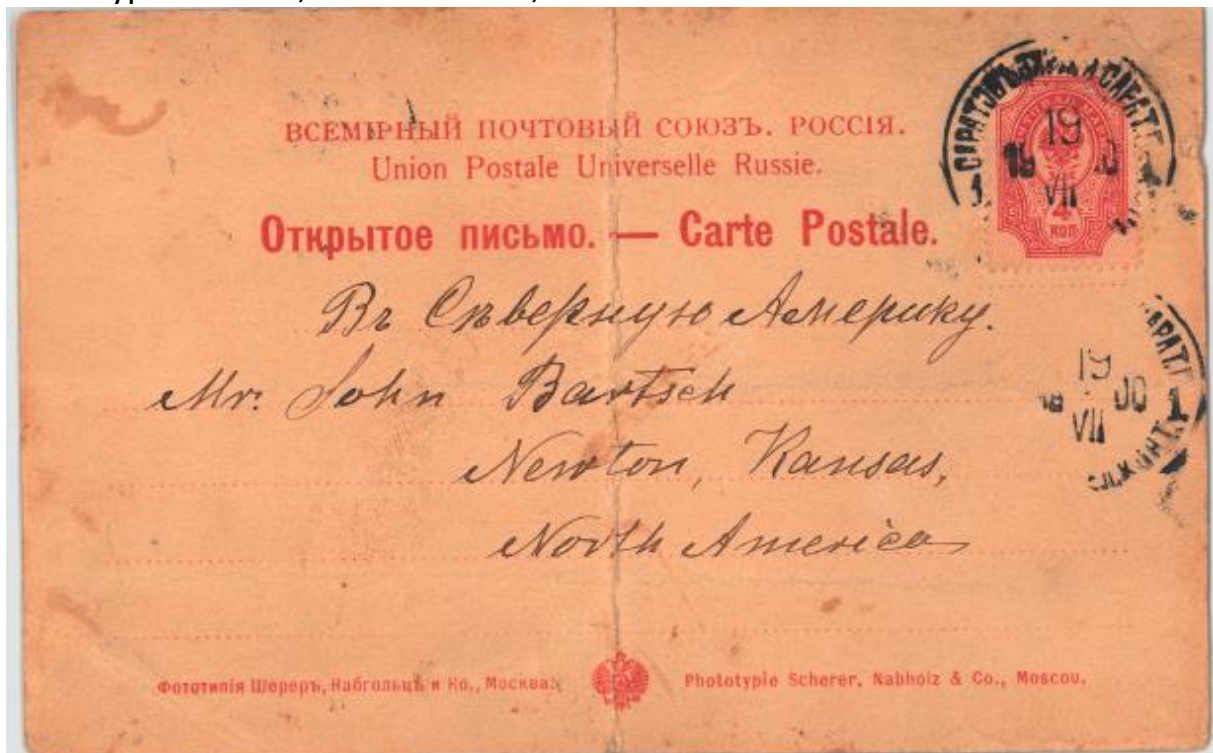 ВСЕМІРНЫЙ ПОЧТОВЫЙ СОЮЗЪ. РОССІЯ.
Union Postale Universelle Russie.
Открытое письмо. — Carte Postale.
19
VII
4
коп
Въ Сѣверную Америку.
Mr. John Bartsch
Newton, Kansas,
North America
19
00 1
VII
Фототипія Шереръ, Набгольцъ и Ко., Москва.
Phototypie Scherer, Nabholz & Co., Moscou.